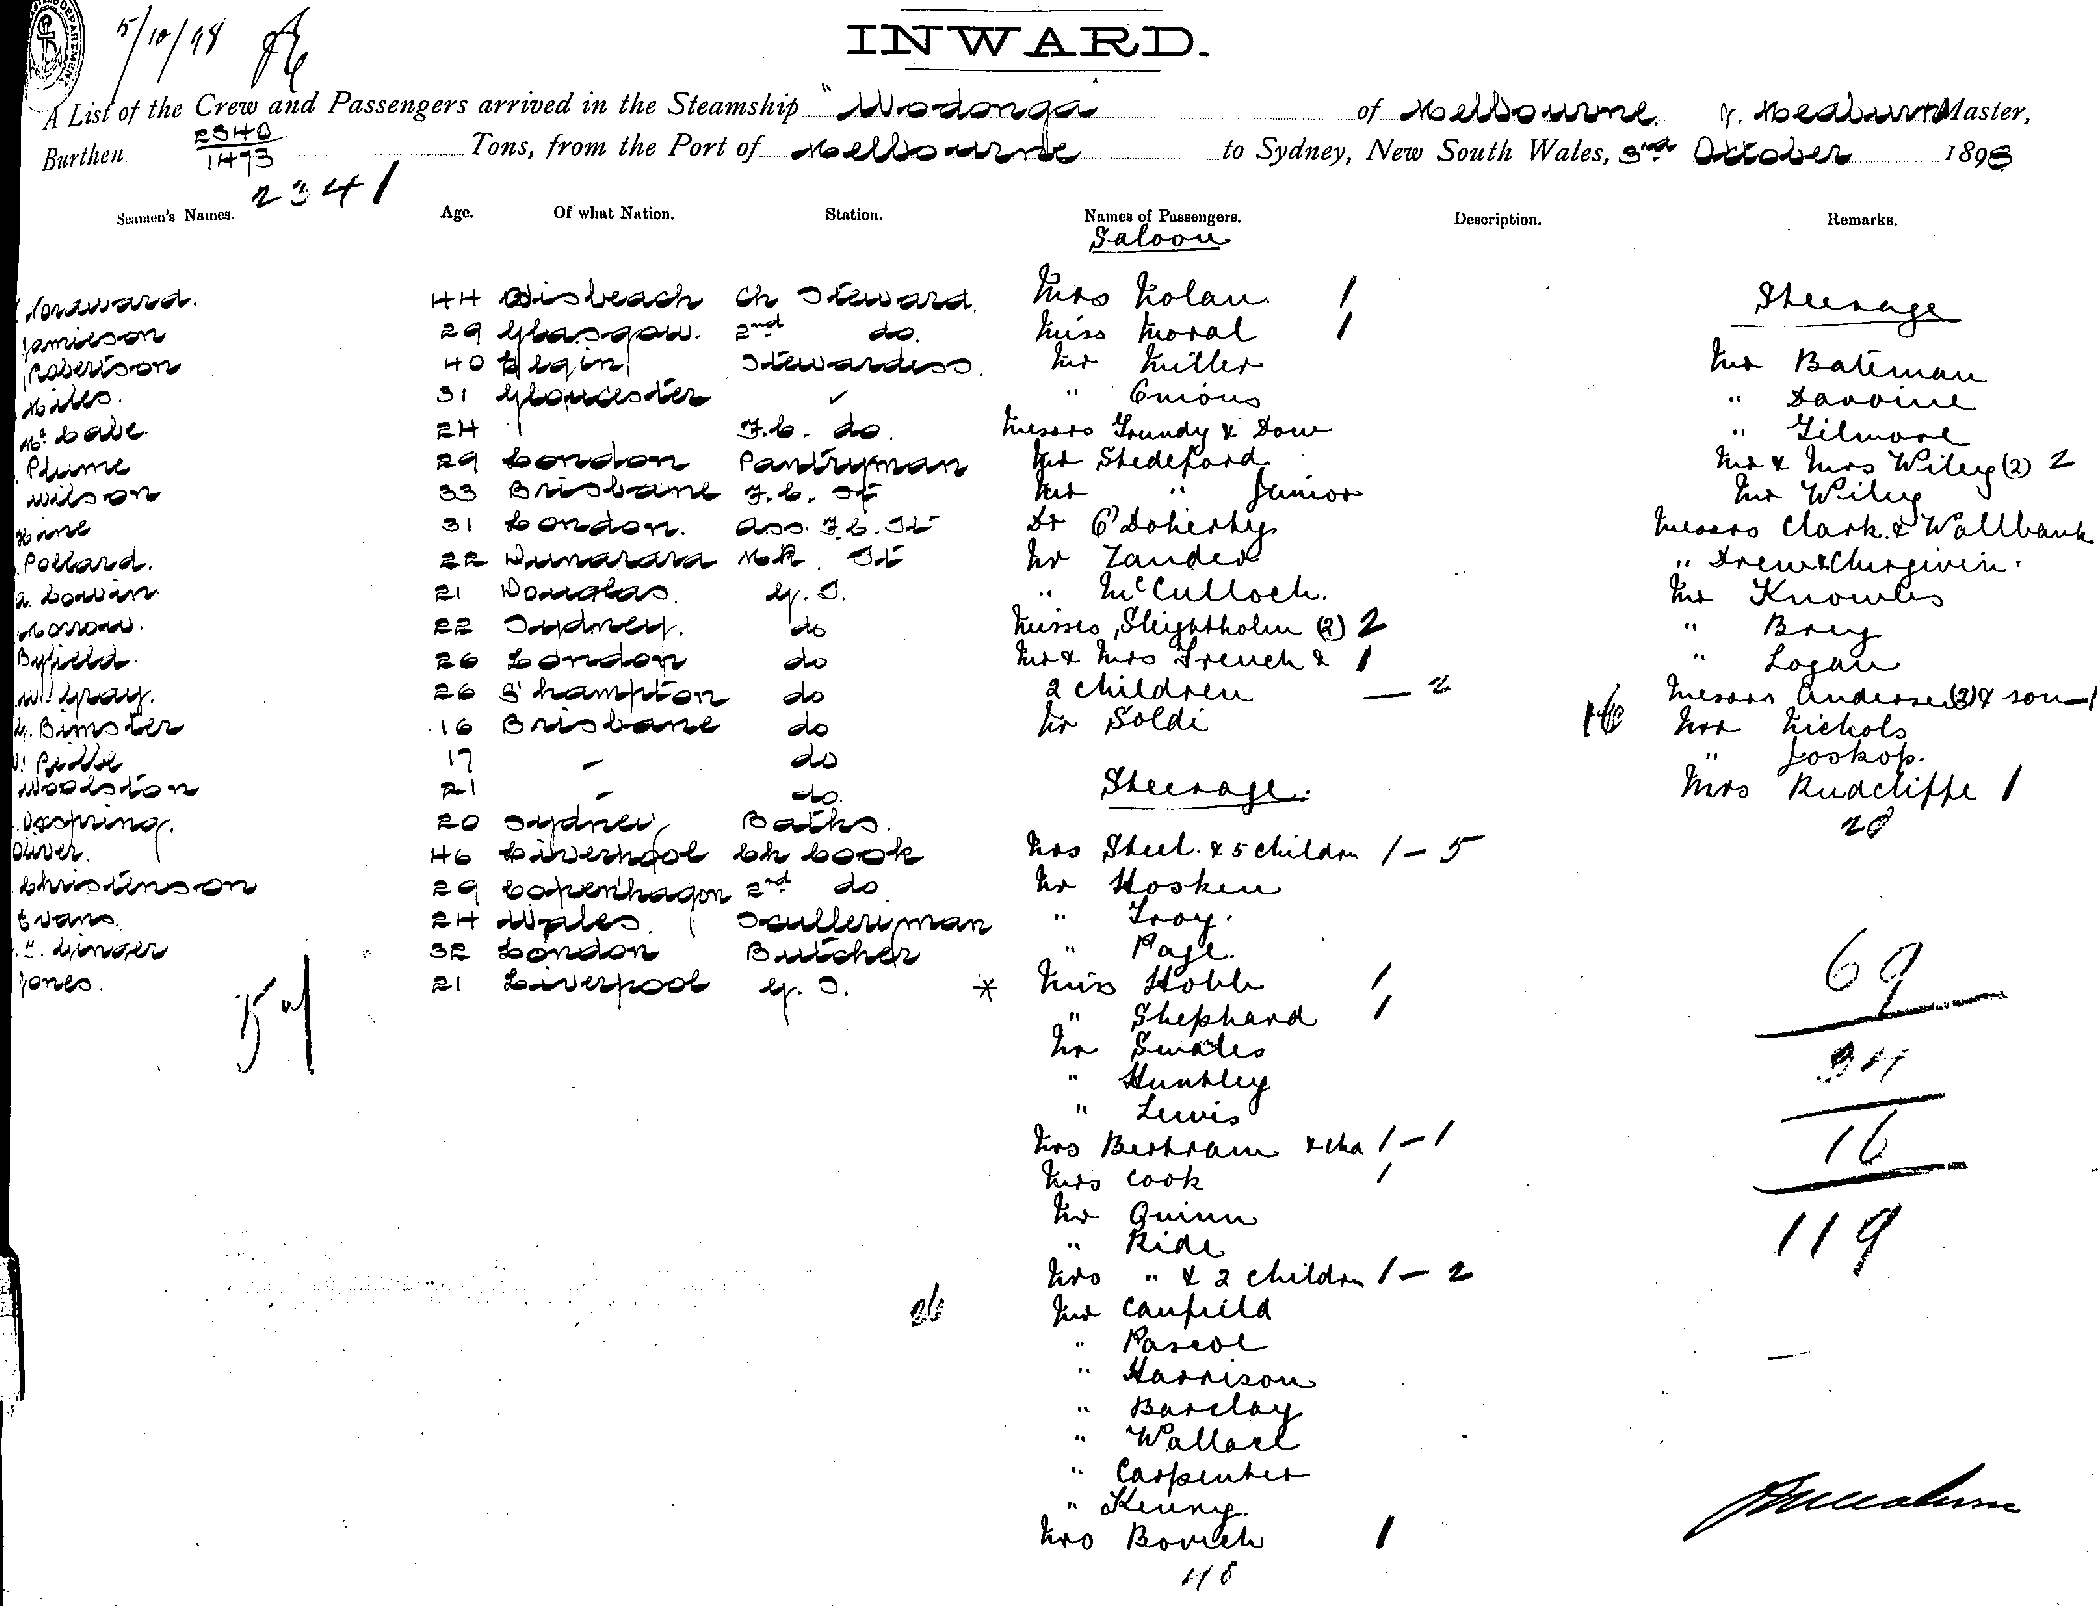 5/10/98
INWARD.
A List of the Crew and Passengers arrived in the Steamship "Wodonga of Melbourne, Meaburn Master,
Burthen 2340 / 1473 Tons, from the Port of Melbourne to Sydney, New South Wales, 3rd October 1898
2341
Seamen's Names. Age. Of what Nation. Station. Names of Passengers. Description. Remarks.
Norward. 44 Wisbeach Ch Steward.
Jamieson 29 Glasgow. 2nd do.
Robertson 40 Elgin Stewardess.
Hiles. 31 Gloucester
McCabe 24 F.C. do.
Plume 29 London Pantryman
Wilson 33 Brisbane F.C. St
Hine 31 London. Ass. F.C. St
Pollard. 22 M.R. St
Cowin 21 Douglas. G.S.
Morrow. 22 Sydney. do
Byfield. 26 London do
Gray. 26 S'hampton do
Bimster 16 Brisbane do
17 " do
Woodston 21 " do.
Ospring. 20 Sydney Baths.
Oliver. 46 Liverpool Ch Cook
Christenson 29 Copenhagen 2nd do
Evans. 24 Wales. Sculleryman
Ginger 32 London Butcher
Jones. 21 Liverpool G.S.
54
Saloon
Mrs Nolan 1
Miss Moral 1
Mr Miller
" Enious
Messrs Grundy & Dow
Mr Stedeford
Mr " Junior
Dr O'Doherty
Mr Zander
" McCulloch.
Misses Sleightholm (2) 2
Mr & Mrs French & 1
2 children — 2
Mr Soldi
16
Steerage.
Mrs Steel. & 5 childrn 1 – 5
Mr Hosken
" Troy.
" Page.
* Miss Hobb 1
" Shephard 1
Mr Swales
" Huntley
" Lewis
Mrs Bertram & chd 1 – 1
Mrs Cook 1
Mr Quinn
" Ride
Mrs " & 2 childrn 1 – 2
26
Mr Canfield
" Pascoe
" Harrison
" Barclay
" Wallace
" Carpenter
" Kenny.
Mrs Bovich 1
48
Steerage
Mr Bateman
" Davoine
" Gilmore
Mr & Mrs Wiley (2) 2
Mr Wiley
Messrs Clark & Wallbank
" Drew & Churgwin.
Mr Knowles
" Brey
" Logan
Messrs Andersen (2) & son – 1
Mr Nichols
" Joskop.
Mrs Rudcliffe 1
20
69
34
16
119